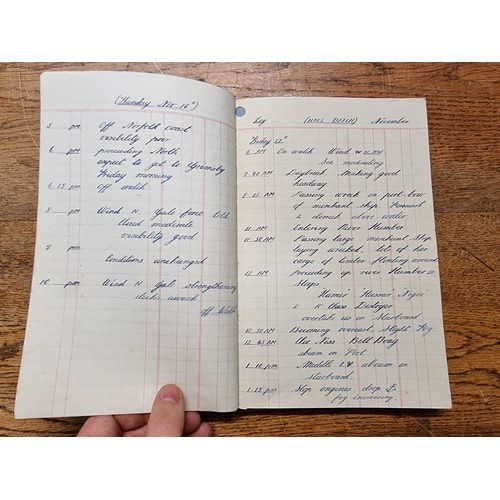 (Thursday Nov 16")
5 pm Off Norfolk coast
visibility poor
6 pm proceeding North
expect to get to Grimsby
Friday morning
6 15 pm Off watch
8 pm Wind N Gale force cold
cloud moderate
visibility good
9 pm Conditions unchanged
10 pm Wind N Gale strengthening
decks awash
Off Watch
Log (HMS BEECH) November
Friday
6 AM On watch Wind
Sea moderating
7 40 AM Daybreak Making good
headway
8 15 AM Passing wreck on port bow
of merchant ship. Foremast
& above water
11 AM Entering River Humber
11 38 AM Passing large merchant ship
laying wrecked. Lot of her
cargo of timber floating around
12 AM proceeding up river Humber
Sloops
"Hussar" Niger
& K Class Destroyer
overtake us on Starboard
10 30 AM Becoming overcast, Slight fog
12 45 AM Ness Bell Buoy
abeam on Port
1 10 pm Middle L.V abeam on
starboard
1 15 pm Stop engines drop
fog increasing.